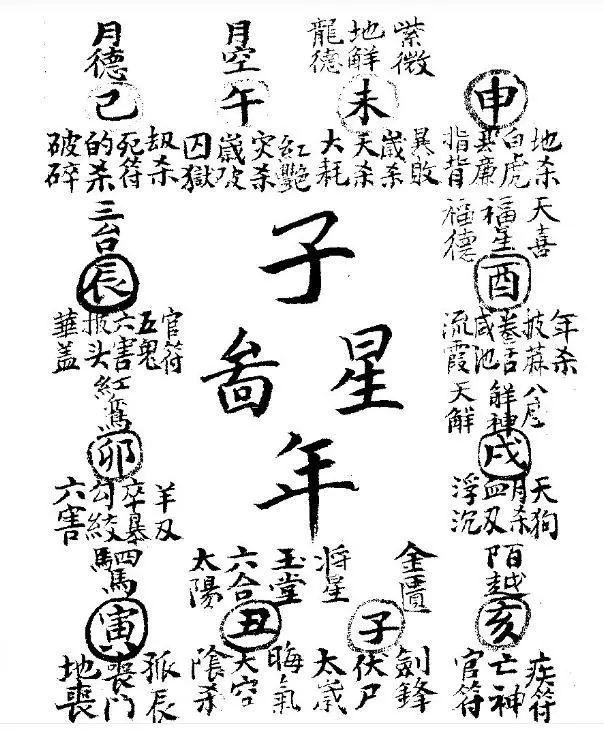 月德
巳
破碎
的杀
死符
劫杀
月空
午
囚獄
歲破
灾杀
紅艷
龍德
地解
紫微
未
大耗
天杀
歲杀
異敗
申
指背
飛廉
白虎
地杀
三台
辰
華盖
披头
六害
五鬼
官符
子年
星啚
福德
福星
天喜
酉
流霞
咸池
卷舌
披蔴
年杀
紅鸞
卯
六害
勾絞
卒暴
羊刃
天解
解神
八座
戌
浮沉
血刃
月杀
天狗
駟馬
寅
地喪
喪門
孤辰
太陽
六合
玉堂
丑
陰杀
天空
晦氣
将星
金匱
子
太歲
伏尸
劍鋒
陌越
亥
官符
亡神
疾符